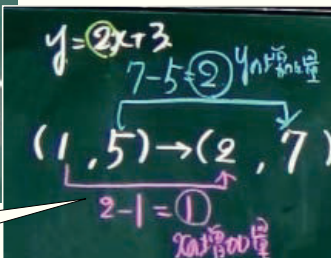 y=2x+3
7-5=2 yの増加量
(1,5)→(2,7)
2-1=1
xの増加量